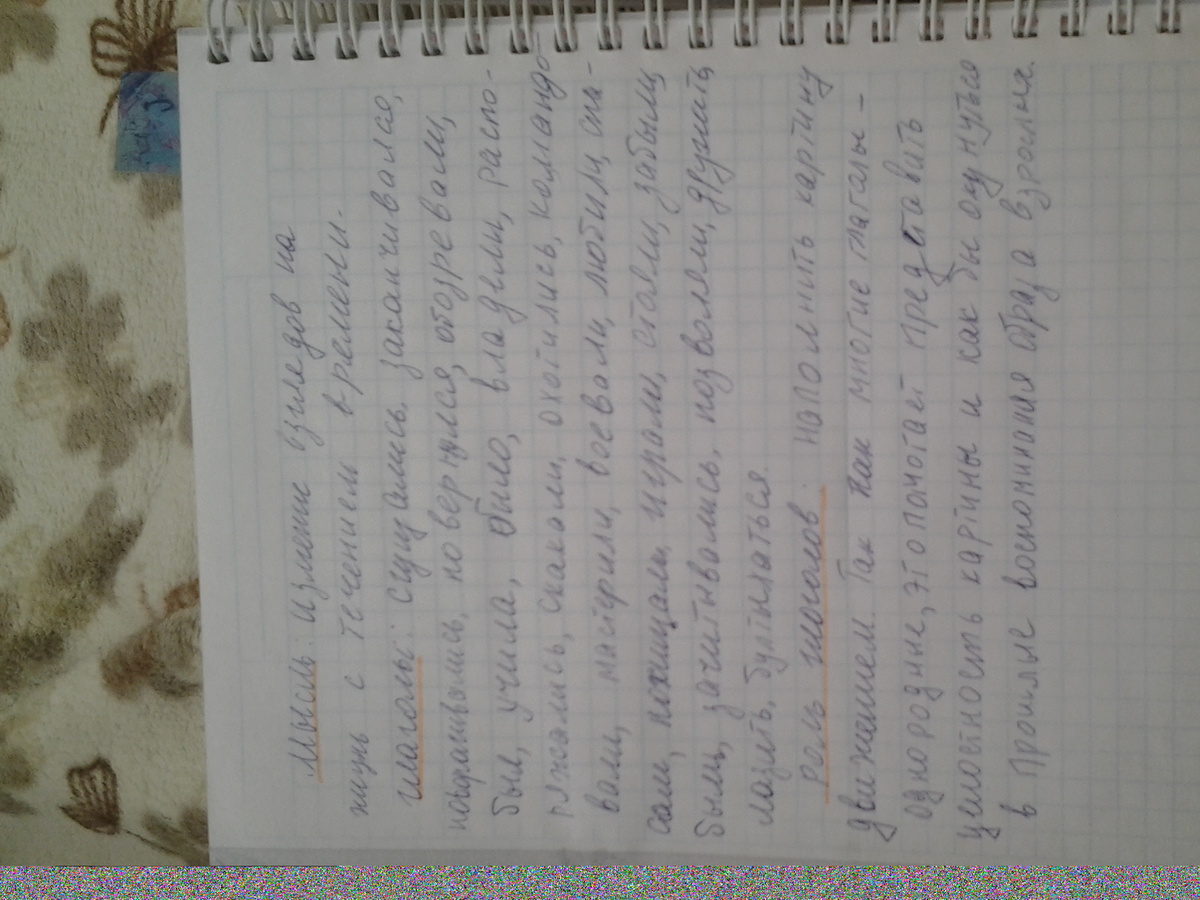 Мысль: измение взглядов на
жизнь с течением времени.
глаголы: слушались, заканчивался,
повернулся, обозревали,
был, учила, было, владели, распо-
ряжались, скакали, охотились, командо-
вали, мастерили, воевали, любили, спа-
сали, похищали, играли, стояли, забыли,
были, зачитывались, позволяли, дружить,
лазить, бултыхаться.
Роль глаголов: наполнить картину
движением. Так как многие глаголы –
однородные, это помогает представить
целостность картины и как бы окунуться
в прошлые воспоминания образа взрослых.